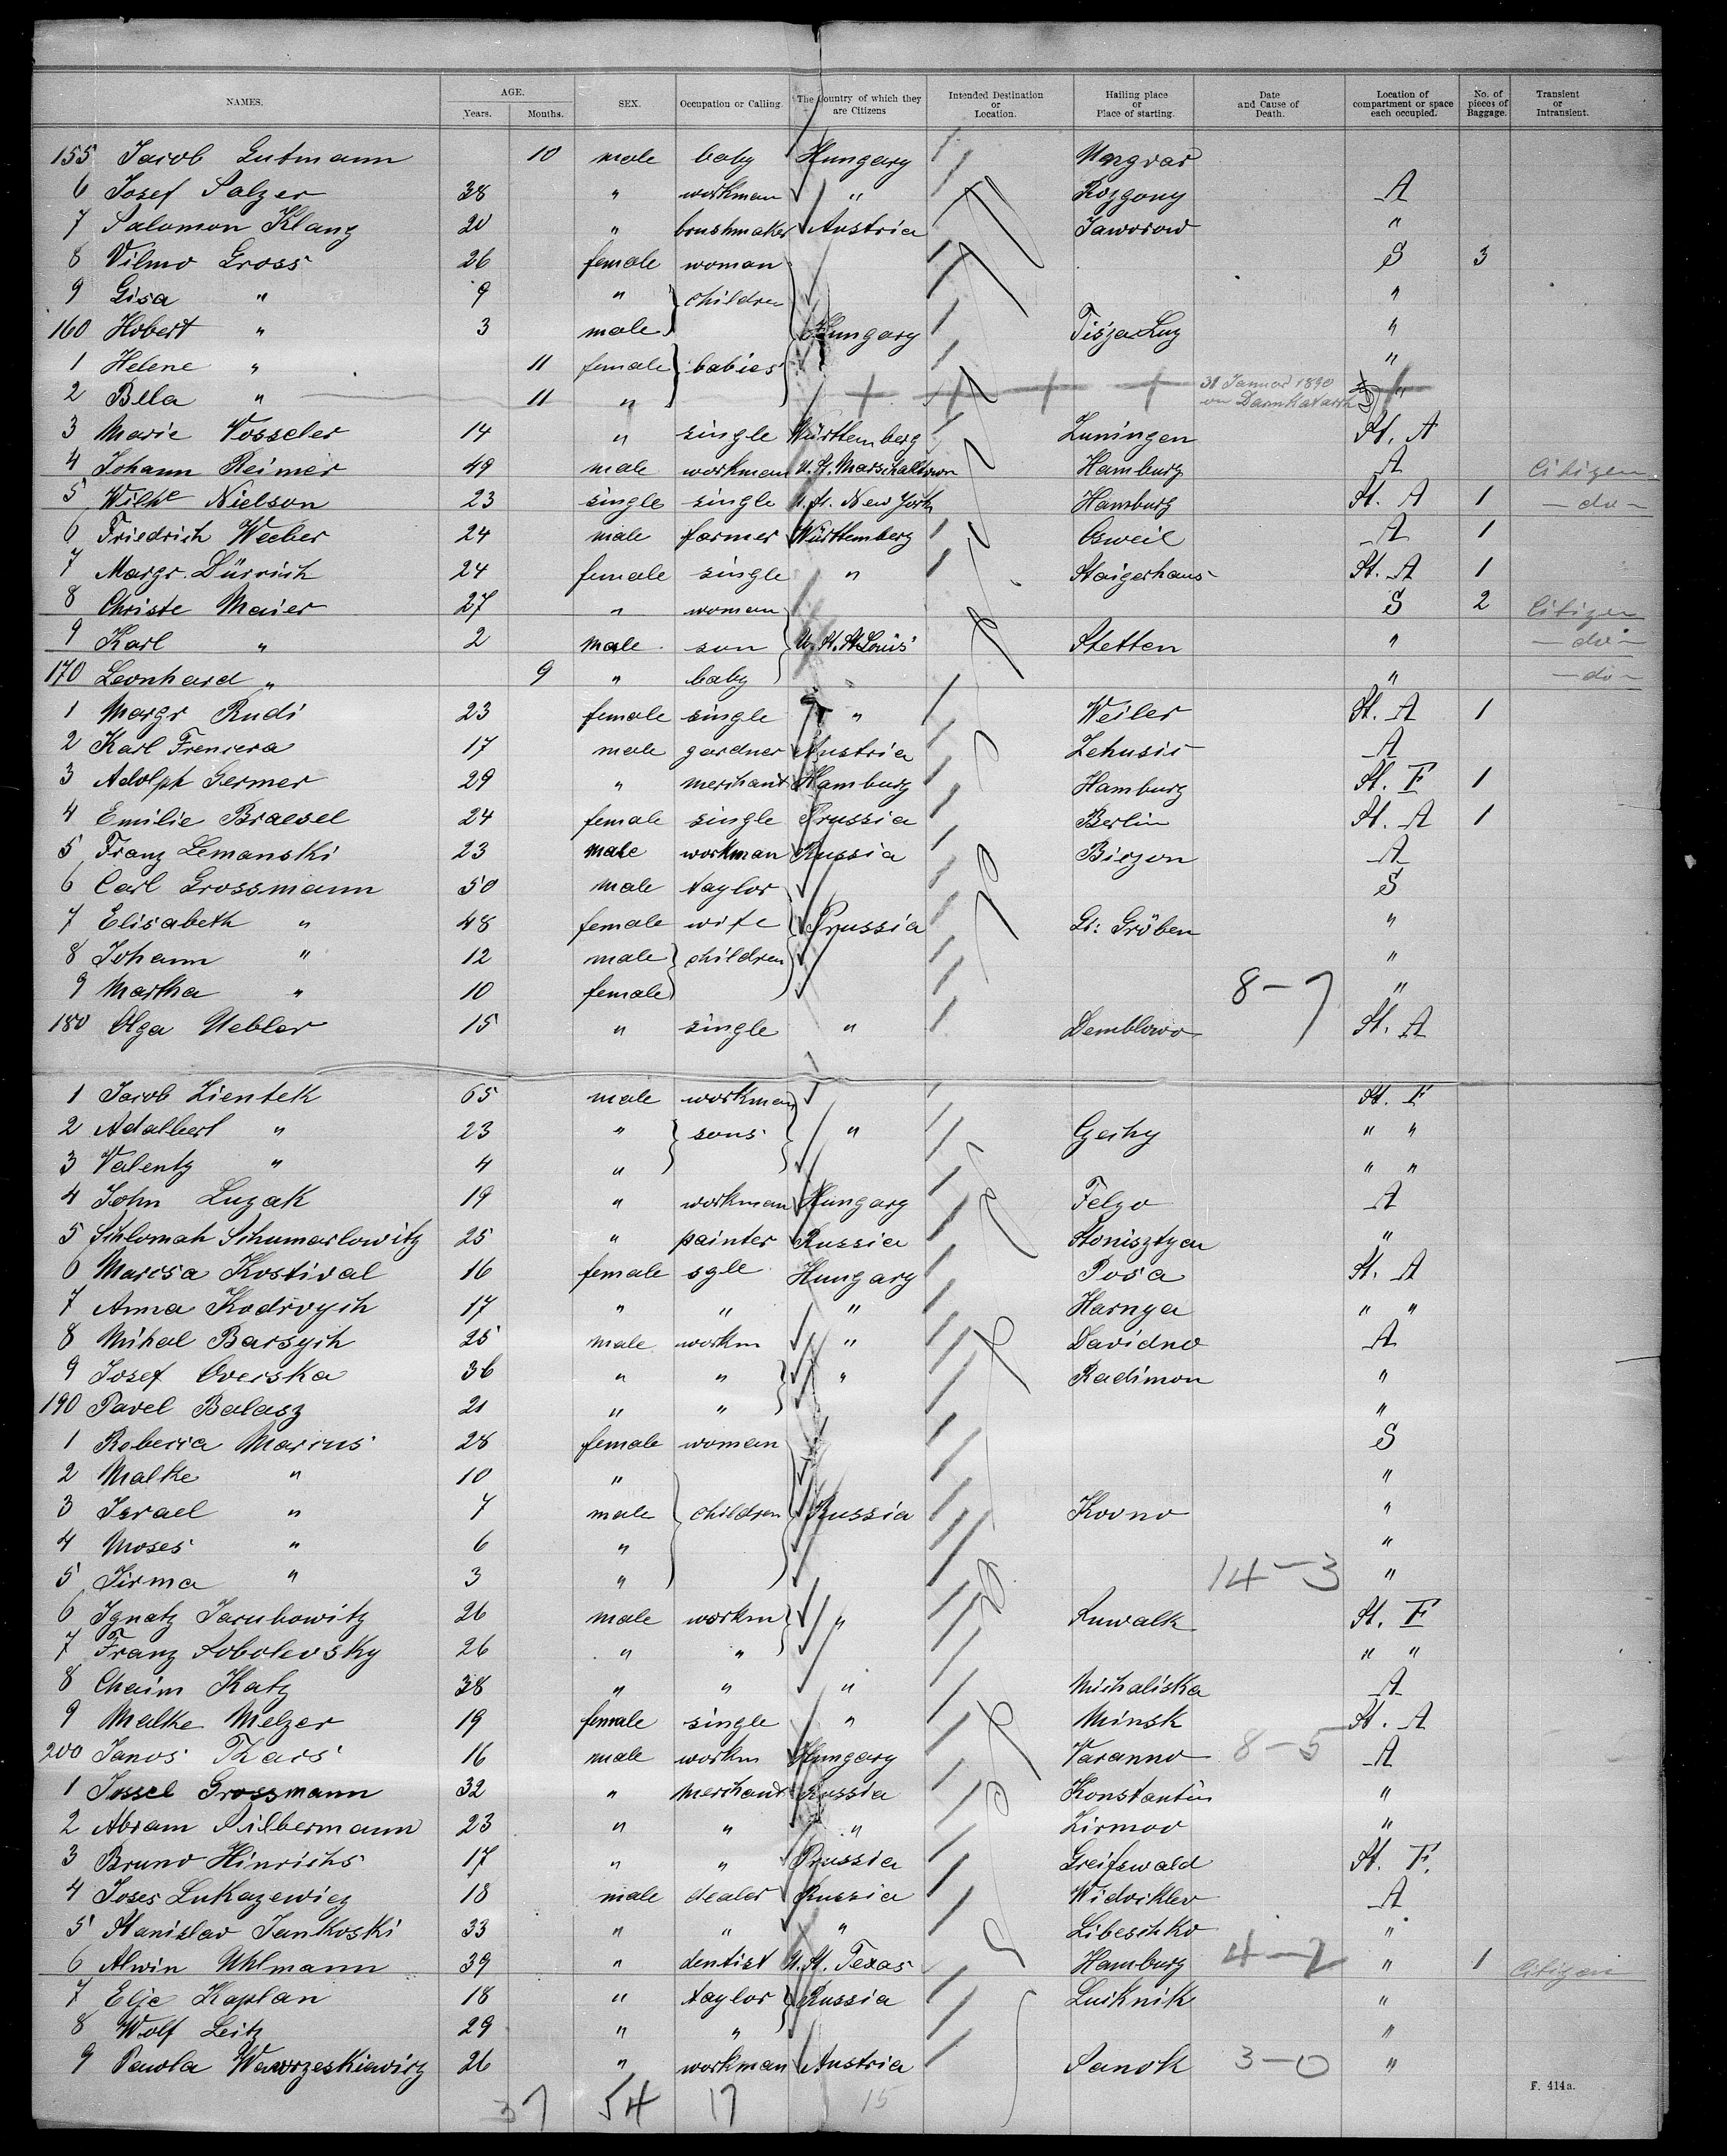 NAMES. AGE. Years. Months. SEX. Occupation or Calling. The Country of which they are Citizens Intended Destination or Location. Hailing place or Place of starting. Date and Cause of Death. Location of compartment or space each occupied. No. of pieces of Baggage. Transient or Intransient.
155 Jacob Gutmann 10 male baby Hungary Ungvar
6 Josef Salzer 38 " workman " Rozgony A
7 Salomon Klang 20 " brushmaker Austria Jaworow "
8 Vilmo Gross 26 female woman S 3
9 Gisa " 9 " children "
160 Hobert " 3 male Hungary Tisza Luz "
1 Helene " 11 female babies "
2 Bela " 11 " 31 Januar 1890 "
3 Marie Vosseler 14 " single Württemberg Zuningen St. A
4 Johann Reimer 49 male workman U. St. Marschalltown Hamburg A Citizen
5 Wilhe Nielson 23 single single U. St. New York Hamburg St. A 1 - do -
6 Friedrich Weeber 24 male farmer Württemberg Osweil A 1
7 Margr. Dürrich 24 female single " Staigerhaus St. A 1
8 Christe Maier 27 " woman S 2 Citizen
9 Karl " 2 male son U. St. St Louis Stetten " - do -
170 Leonhard " 9 " baby " - do -
1 Margr Rudi 23 female single " Weiler St. A 1
2 Karl Frencera 17 male gardner Austria Zehusic A
3 Adolph Germer 29 " merchant Hamburg Hamburg St. F 1
4 Emilie Braesel 24 female single Prussia Berlin St. A 1
5 Franz Lemanski 23 male workman Russia Birzon A
6 Carl Grossmann 50 male taylor S
7 Elisabeth " 48 female wife Prussia Gr: Gröben "
8 Johann " 12 male children "
9 Martha " 10 female 8-7 "
180 Olga Uebler 15 " single " Demblowo St. A
1 Jacob Zientek 65 male workman St. F
2 Adalbert " 23 " sons " " "
3 Valentz " 4 " " "
4 John Luzak 19 " workman Hungary Felzo A
5 Schlomah Schumarlowitz 25 " painter Russia Stonisztyen "
6 Marcsa Kostival 16 female sgle Hungary Posa St. A
7 Anna Kodrvych 17 " " " Harnya " "
8 Mihal Barsych 25 male workm " Davidno A
9 Josef Overska 36 " " " Radimon "
190 Pavel Balasz 21 " " "
1 Rebecca Marcus 28 female woman S
2 Malke " 10 " "
3 Israel " 7 male children Russia Kovno "
4 Moses " 6 " "
5 Firma " 3 " 14-3 "
6 Ignatz Jacubowitz 26 male workm " Suwalk St. F
7 Franz Sobolevsky 26 " " " "
8 Chaim Katz 38 " " " Michaliska A
9 Malke Melzer 19 female single " Minsk St. A
200 Janos Tkacs 16 male workm Hungary Varanno 8-5 A
1 Jossel Grossmann 32 " merchant Russia Konstantin "
2 Abram Silbermann 23 " " " Zirmov "
3 Bruno Hinrichs 17 " " Prussia Greifswald St. F.
4 Joses Lukazewicz 18 male dealer Russia Widviklev A
5 Stanislav Jankoski 33 " " " Libeschko "
6 Alwin Uhlmann 39 " dentist U. St. Texas Hamburg 4-2 " 1 Citizen
7 Elje Kaplan 18 " taylor Russia Luiknik "
8 Wolf Leitz 29 " " "
9 Pawla Wawrzeskiewicz 26 " workman Austria Sanok 3-0 "
37 54 17 15
F. 414a.